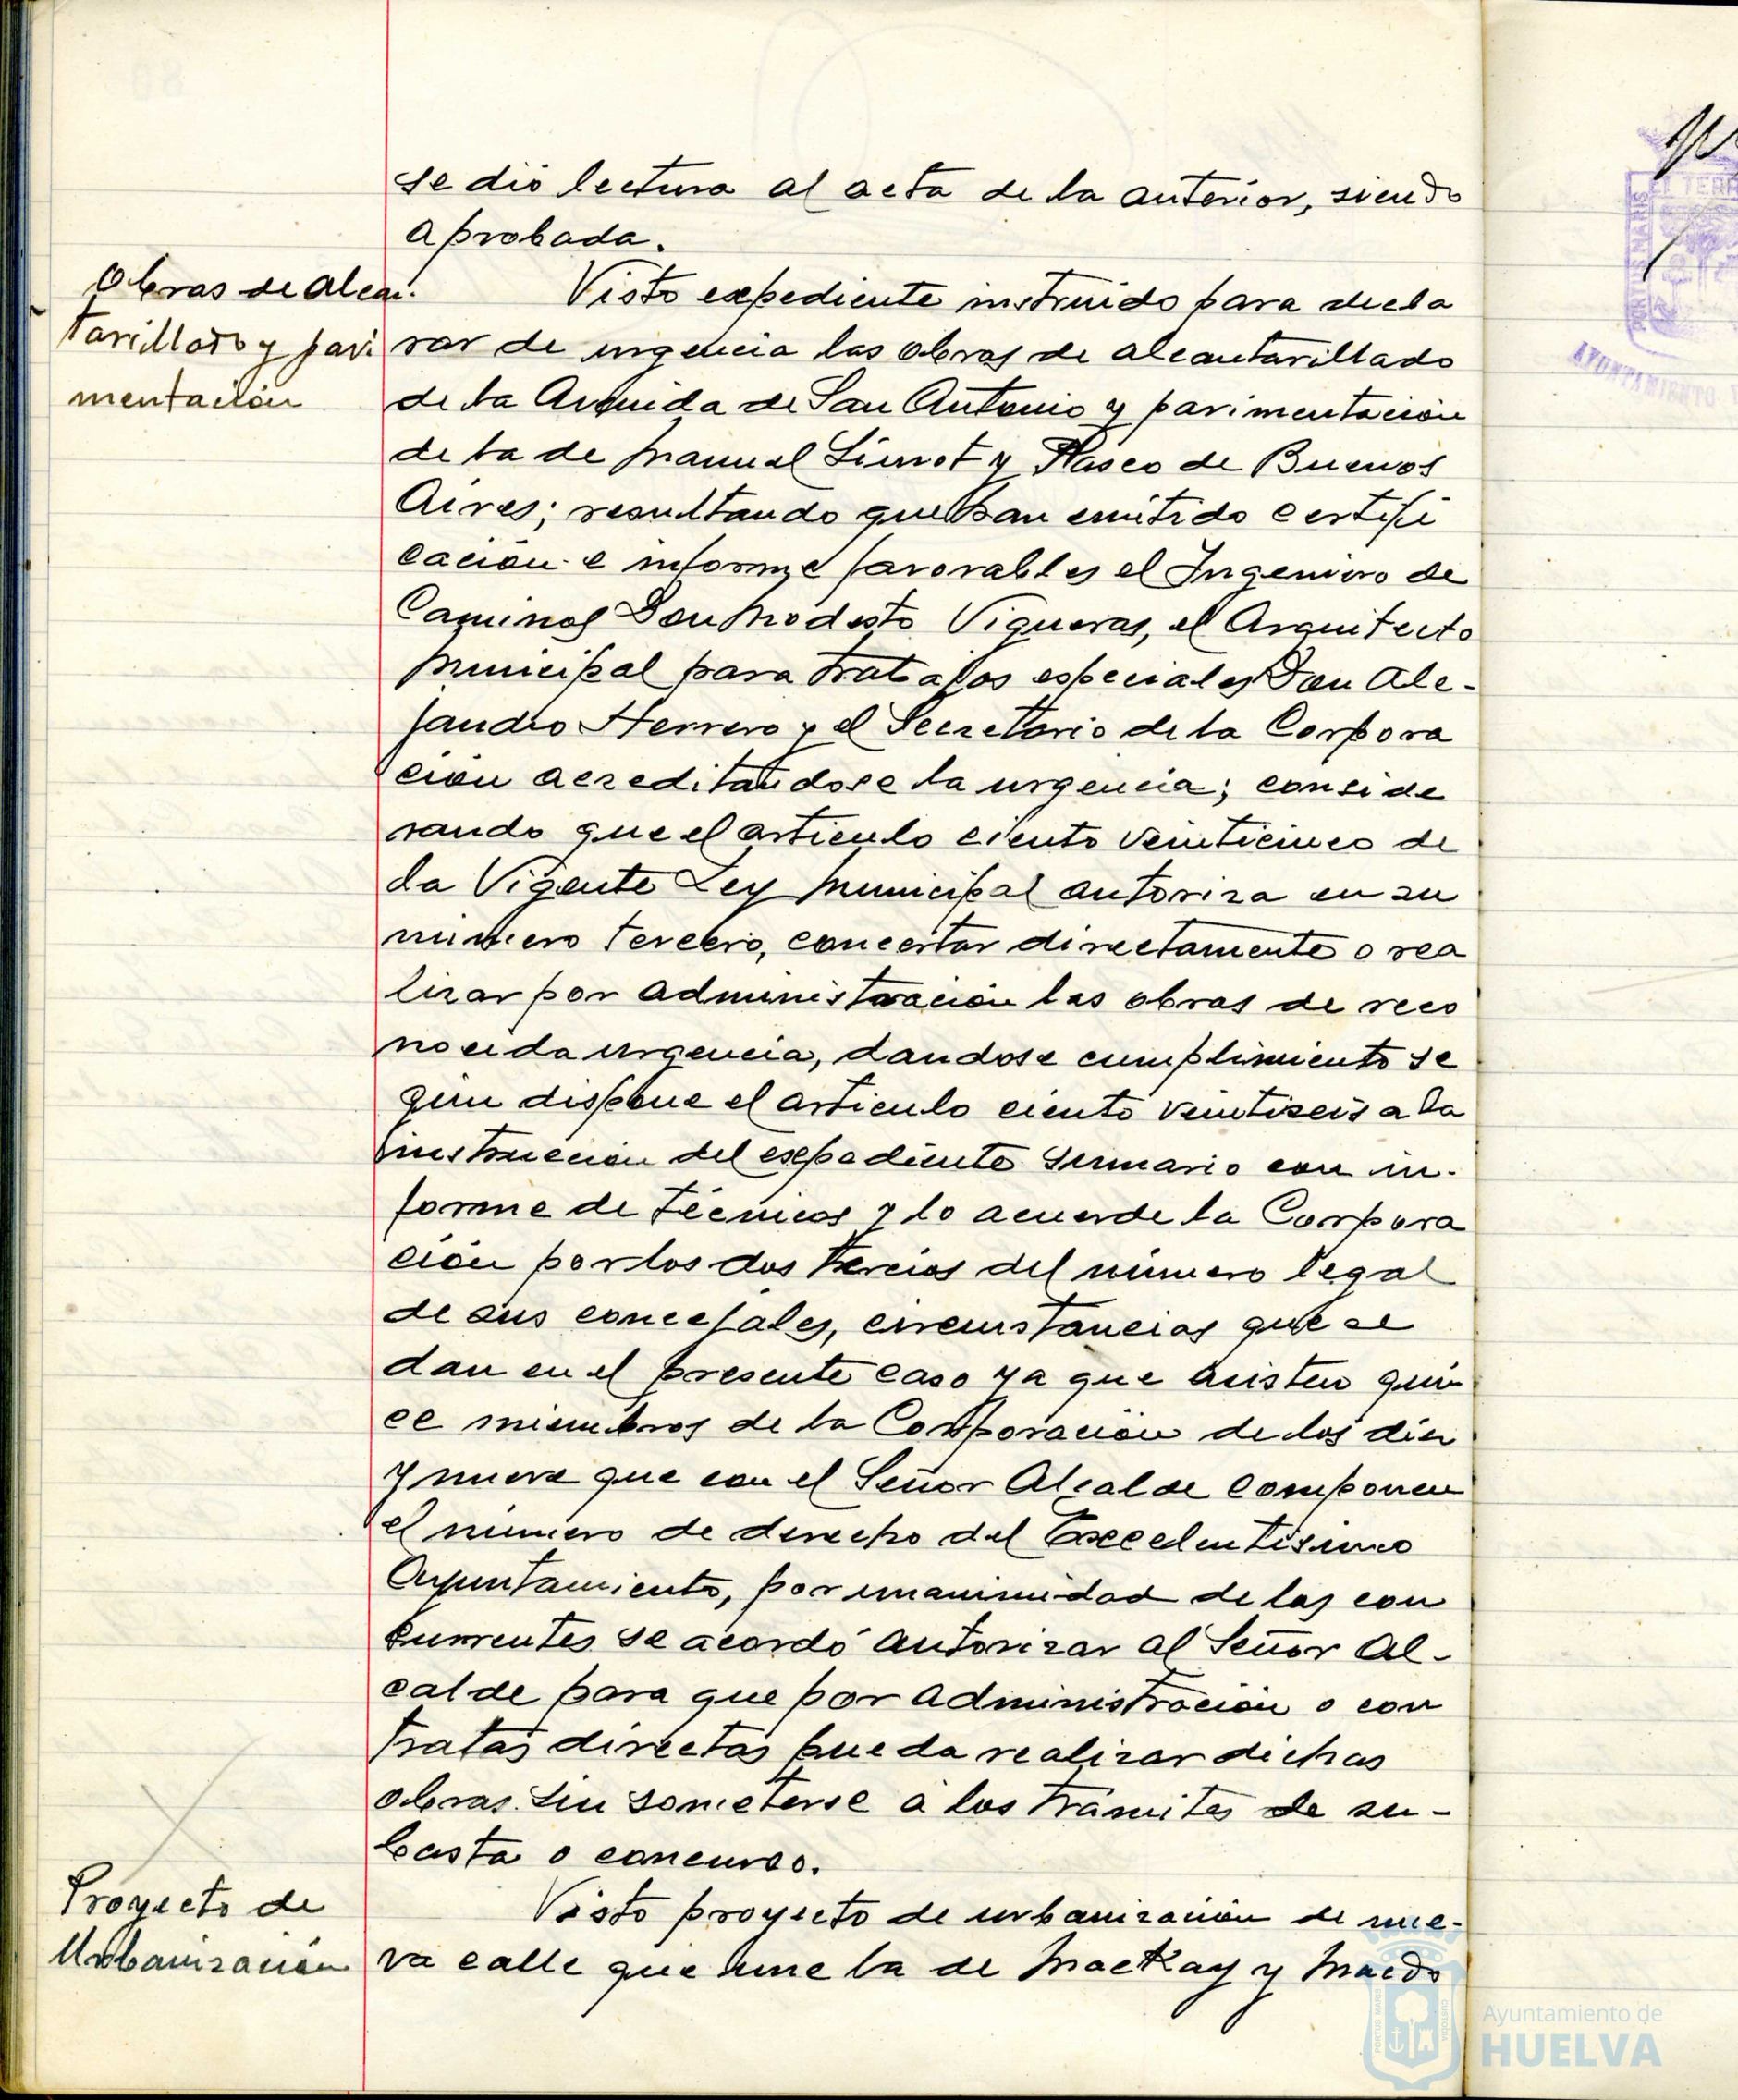 se dió lectura al acta de la anterior, siendo
aprobada.
Obras de alcan-
tarillado y pavi
mentación
Visto expediente instruido para decla
rar de urgencia las obras de alcantarillado
de la Avenida de San Antonio y pavimentación
de la de Manuel Siurot y Paseo de Buenos
Aires; resultando que han emitido certifi
cación e informe favorables el Ingeniero de
Caminos Don Modesto Vigueras, el Arquitecto
Municipal para trabajos especiales Don Ale-
jandro Herrero y el Secretario de la Corpora
cion acreditandose la urgencia; conside
rando que el articulo ciento veinticinco de
la Vigente Ley Municipal autoriza en su
número tercero, concertar directamente o rea
lizar por administración las obras de reco
nocida urgencia, dandose cumplimiento se
gun dispone el articulo ciento veintiseis a la
instrucción del expediente sumario con in-
forme de técnicos y lo acuerde la Corpora
ción por los dos tercios del número legal
de sus concejales, circunstancias que se
dan en el presente caso ya que asisten quin
ce miembros de la Corporación de los diez
y nueve que con el Señor Alcalde componen
el número de derecho del Excelentisimo
Ayuntamiento, por unanimidad de los con
currentes se acordó autorizar al Señor Al-
calde para que por administración o con
tratas directas pueda realizar dichas
obras sin someterse a los trámites de su-
basta o concurso.
Proyecto de
Urbanización
Visto proyecto de urbanización de nue-
va calle que une la de Mackay y Macdo
EL TERR
PORTUS MARIS
AYUNTAMIENTO
Ayuntamiento de
HUELVA